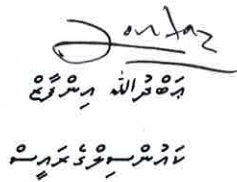 ޢަބްދުﷲ އިންފާޒް
ކައުންސިލްގެރައީސް